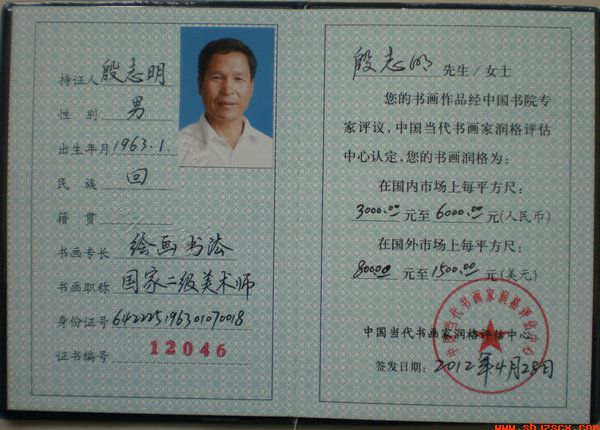 持证人 殷志明
性别 男
出生年月 1963.1.
民族 回
籍贯
书画专长 绘画 书法
书画职称 国家二级美术师
身份证号 642225196301070018
证书编号 12046
殷志明 先生/女士
您的书画作品经中国书院专
家评议，中国当代书画家润格评估
中心认定，您的书画润格为：
在国内市场上每平方尺：
3000.00 元至 6000.00 元(人民币)
在国外市场上每平方尺：
800.00 元至 1500.00 元(美元)
中国当代书画家润格评估中心
签发日期：2012年4月28日
中国当代书画家润格评估中心
www.sbjzscx.com